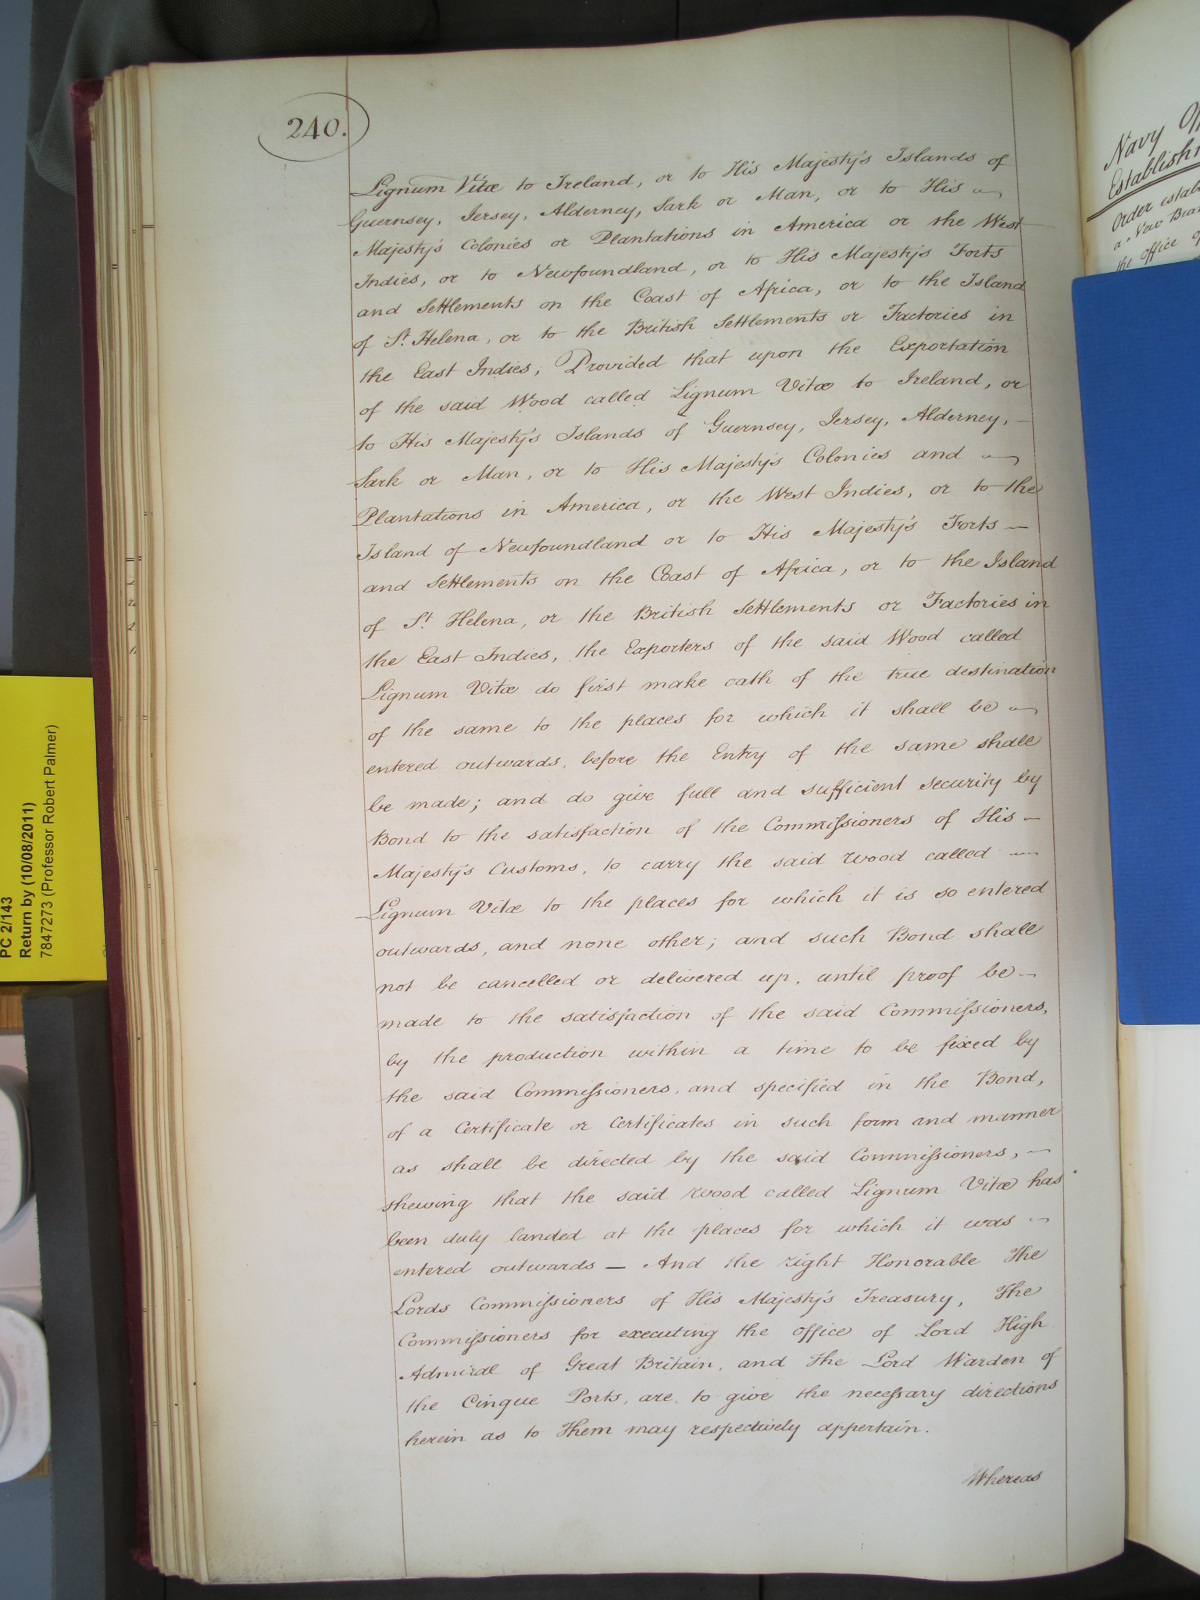 240.
Lignum Vitæ to Ireland, or to His Majesty's Islands of
Guernsey, Jersey, Alderney, Sark or Man, or to His
Majesty's Colonies or Plantations in America or the West
Indies, or to Newfoundland, or to His Majesty's Forts
and Settlements on the Coast of Africa, or to the Island
of St. Helena, or to the British Settlements or Factories in
the East Indies; Provided that upon the Exportation
of the said Wood called Lignum Vitæ to Ireland, or
to His Majesty's Islands of Guernsey, Jersey, Alderney, –
Sark or Man, or to His Majesty's Colonies and
Plantations in America, or the West Indies, or to the
Island of Newfoundland or to His Majesty's Forts —
and Settlements on the Coast of Africa, or to the Island
of St. Helena, or the British Settlements or Factories in
the East Indies, the Exporters of the said Wood called
Lignum Vitæ do first make oath of the true destination
of the same to the places for which it shall be
entered outwards, before the Entry of the same shall
be made; and do give full and sufficient security by
Bond to the satisfaction of the Commissioners of His –
Majesty's Customs, to carry the said Wood called —
Lignum Vitæ to the places for which it is so entered
outwards, and none other; and such Bond shall
not be cancelled or delivered up, until proof be –
made to the satisfaction of the said Commissioners,
by the production within a time to be fixed by
the said Commissioners, and specified in the Bond,
of a Certificate or Certificates in such form and manner
as shall be directed by the said Commissioners, –
shewing that the said Wood called Lignum Vitæ has
been duly landed at the places for which it was –
entered outwards — And the right Honorable The
Lords Commissioners of His Majesty's Treasury, The
Commissioners for executing the office of Lord High
Admiral of Great Britain, and the Lord Warden of
the Cinque Ports, are to give the necessary directions
herein as to Them may respectively appertain.
Whereas
Navy
Order
a New
the Office
PC 2/143
Return by (10/08/2011)
7847273 (Professor Robert Palmer)